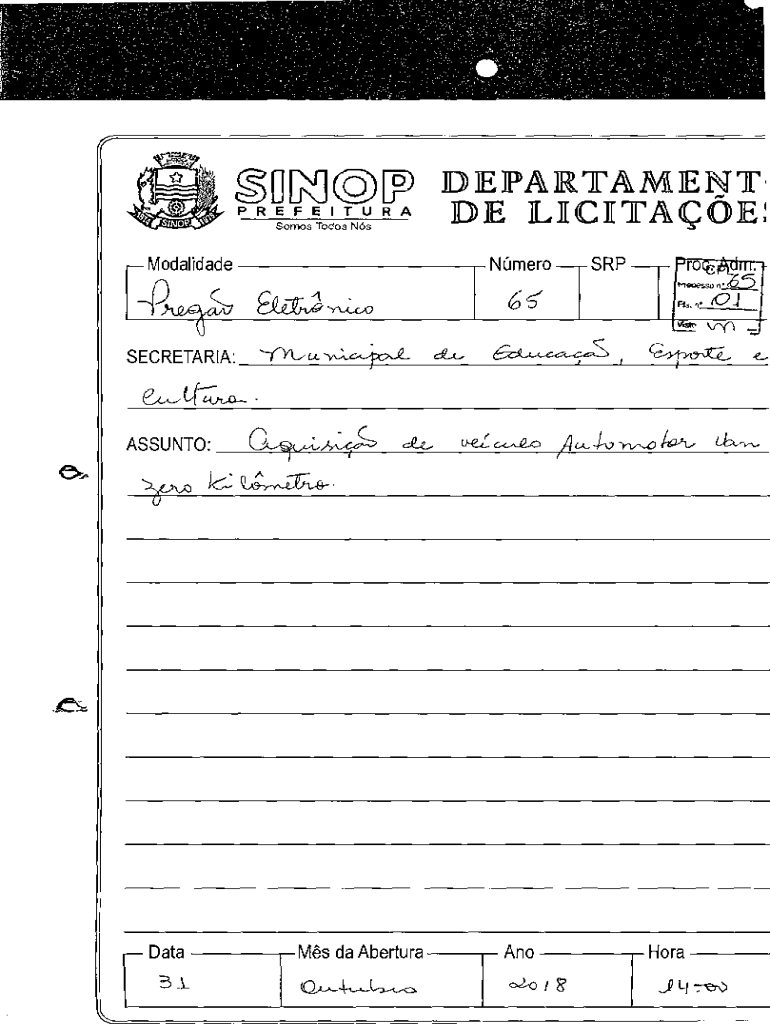 SINOP
PREFEITURA
Somos Todos Nós
DEPARTAMENT
DE LICITAÇÕES
Modalidade Número SRP Proc. Adm.
Pregão Eletrônico 65
CPL
Processo nº 65
Fls. nº 01
Visto
SECRETARIA: Municipal de Educação, Esporte e
Cultura.
ASSUNTO: Aquisição de veículo Automotor Van
zero kilômetro.
Data Mês da Abertura Ano Hora
31 Outubro 2018 14:00